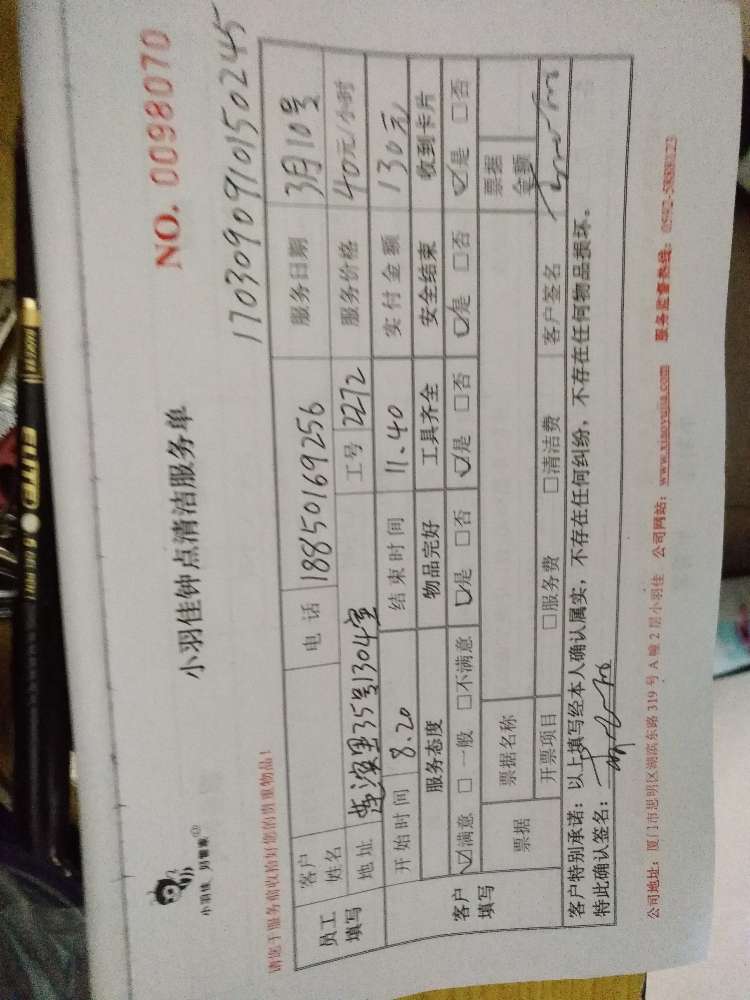 小羽佳 另一家
小羽佳钟点清洁服务单
NO. 0098070
请您于服务前收拾好您的贵重物品！
1703090910150245
员工填写
客户姓名
电话 18850169256
服务日期 3月10号
地址 35号1304室
工号 2272
服务价格 40元/小时
开始时间 8.20
结束时间 11.40
实付金额 130元
客户填写
服务态度 物品完好 工具齐全 安全结束 收到卡片
☑满意 □一般 □不满意 ☑是 □否 ☑是 □否 ☑是 □否 ☑是 □否
票据 票据名称 票据金额
开票项目 □服务费 □清洁费 客户签名
客户特别承诺：以上填写经本人确认属实，不存在任何纠纷，不存在任何物品损坏。
特此确认签名：
公司地址：厦门市思明区湖滨东路 319 号 A 幢 2 层小羽佳 公司网站：www.xiaoyujia.com 服务监督热线：0592-5888123